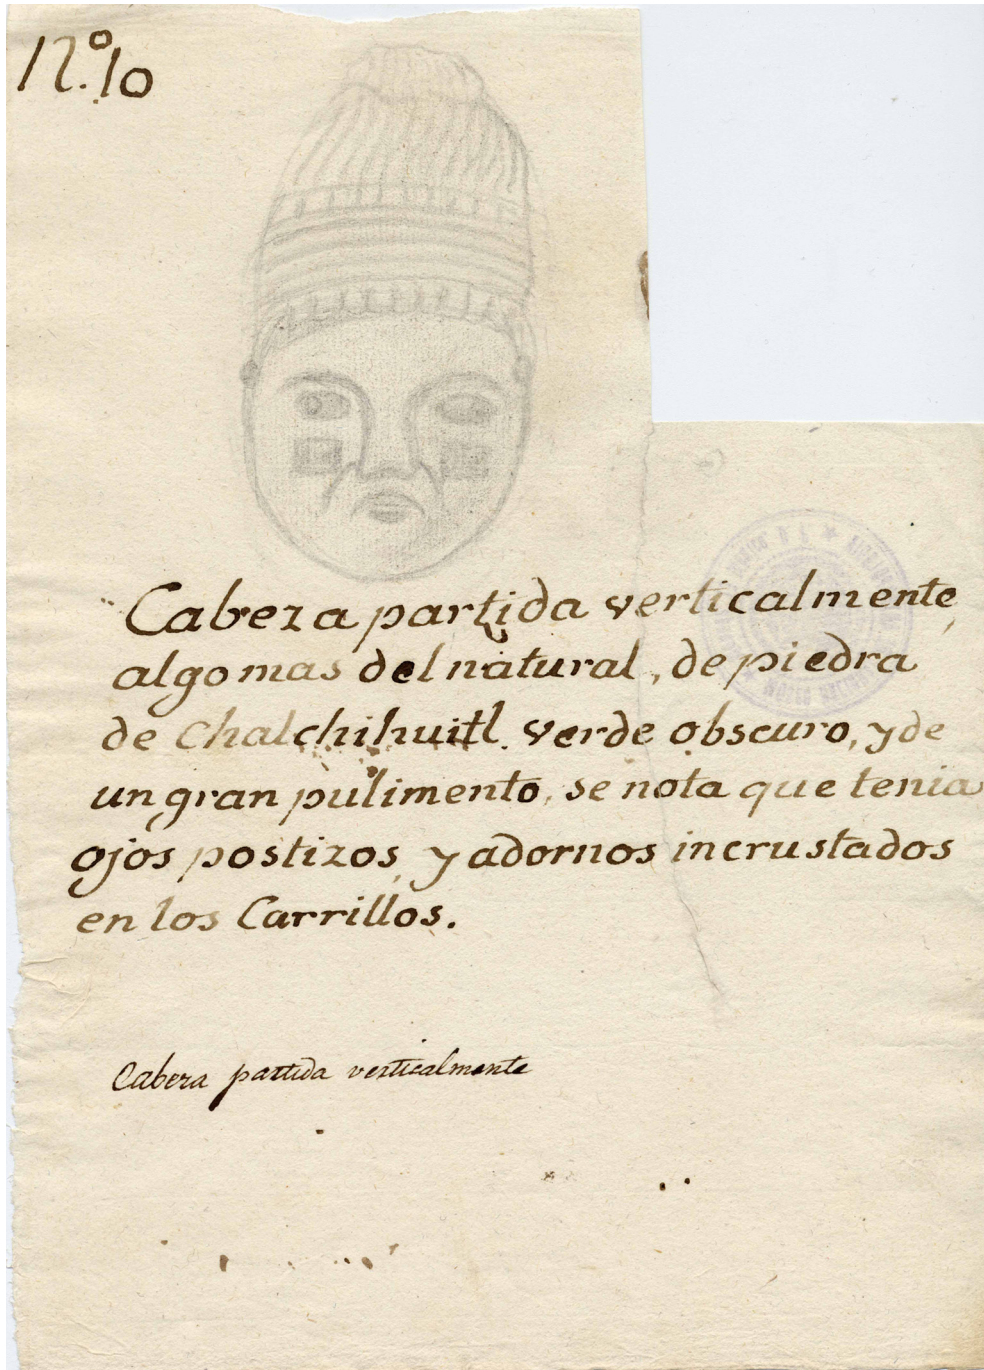 N.º 10
Cabeza partida verticalmente,
algo mas del natural, de piedra
de Chalchihuitl verde obscuro, y de
un gran pulimento, se nota que tenia
ojos postizos, y adornos incrustados
en los Carrillos.
Cabeza partida verticalmente